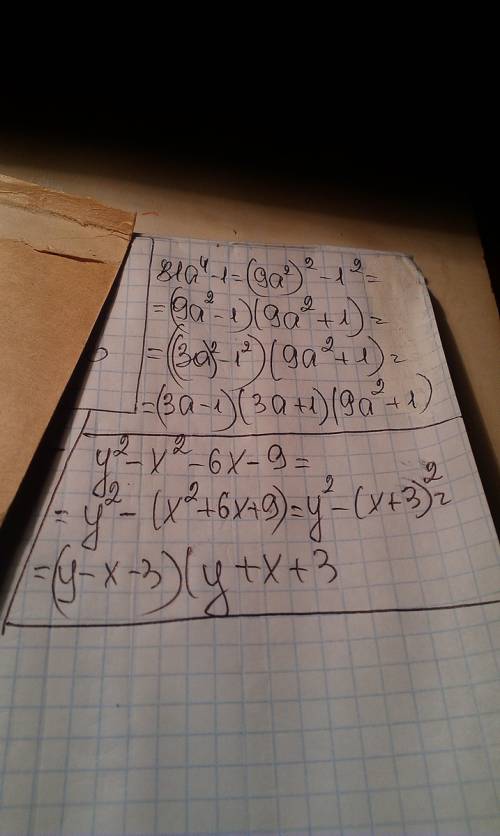 81a⁴-1=(9a²)²-1²=
=(9a²-1)(9a²+1)=
=((3a)²-1²)(9a²+1)=
=(3a-1)(3a+1)(9a²+1)
y²-x²-6x-9=
=y²-(x²+6x+9)=y²-(x+3)²=
=(y-x-3)(y+x+3